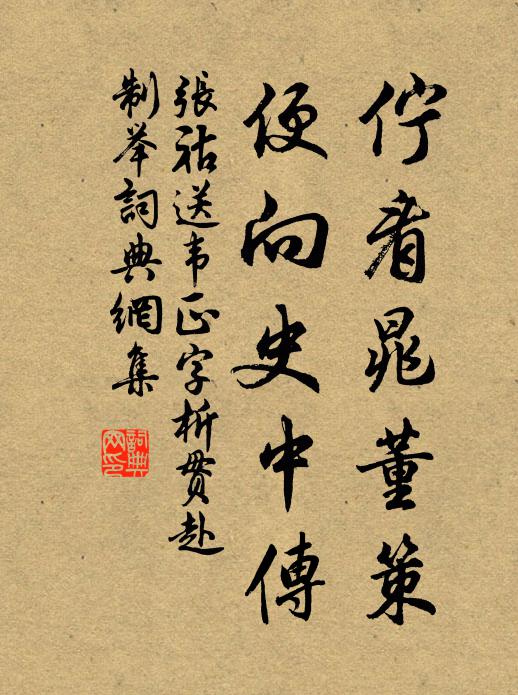 佇看晁董策
便向史中傳
張祜送韦正字析贯赴
制举詞典網集
詞典网印